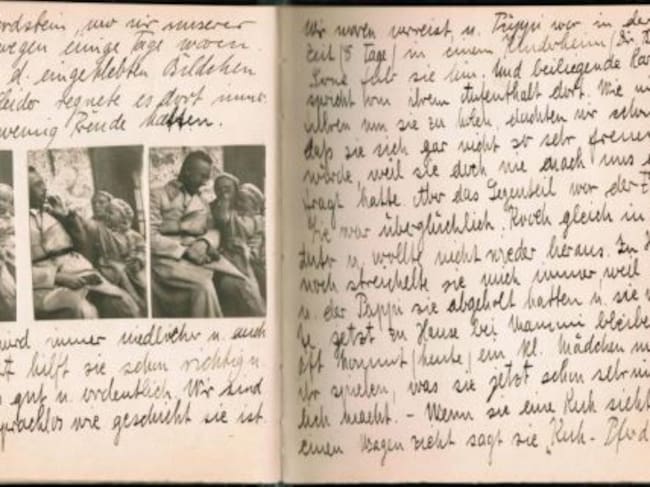 ordstein, wo wir unserer
wegen einige Tage waren.
d. eingeklebten Bildchen
leider regnete es dort immer.
wenig Freude hatten.
wird immer niedlicher u. auch
hilft sie schon richtig u.
gut u. ordentlich. Wir sind
sprachlos wie geschickt sie ist.
Wir waren verreist u. Püppi war in der
Zeit /8 Tage/ in einem Kinderheim
sie hin. Und beiliegende Kar
spricht von ihrem Aufenthalt dort. Wie wir
fuhren um sie zu holen, dachten wir schon
daß sie sich gar nicht so sehr freuen
würde, weil sie doch nie nach uns
fragt hatte. Aber das Gegenteil war der
Sie war überglücklich. Kroch gleich in
Auto u. wollte nicht wieder heraus. Zu H
noch streichelte sie mich immer, weil
u. der Pappi sie abgeholt hatten u. sie
jetzt zu Hause bei Mammi bleibe
oft kommt /heute/ ein kl. Mädchen
ihr spielen, was sie jetzt schon sehr
lich macht. – Wenn sie eine Kuh sieht
einen Wagen zieht sagt sie „Kuh - Pferd